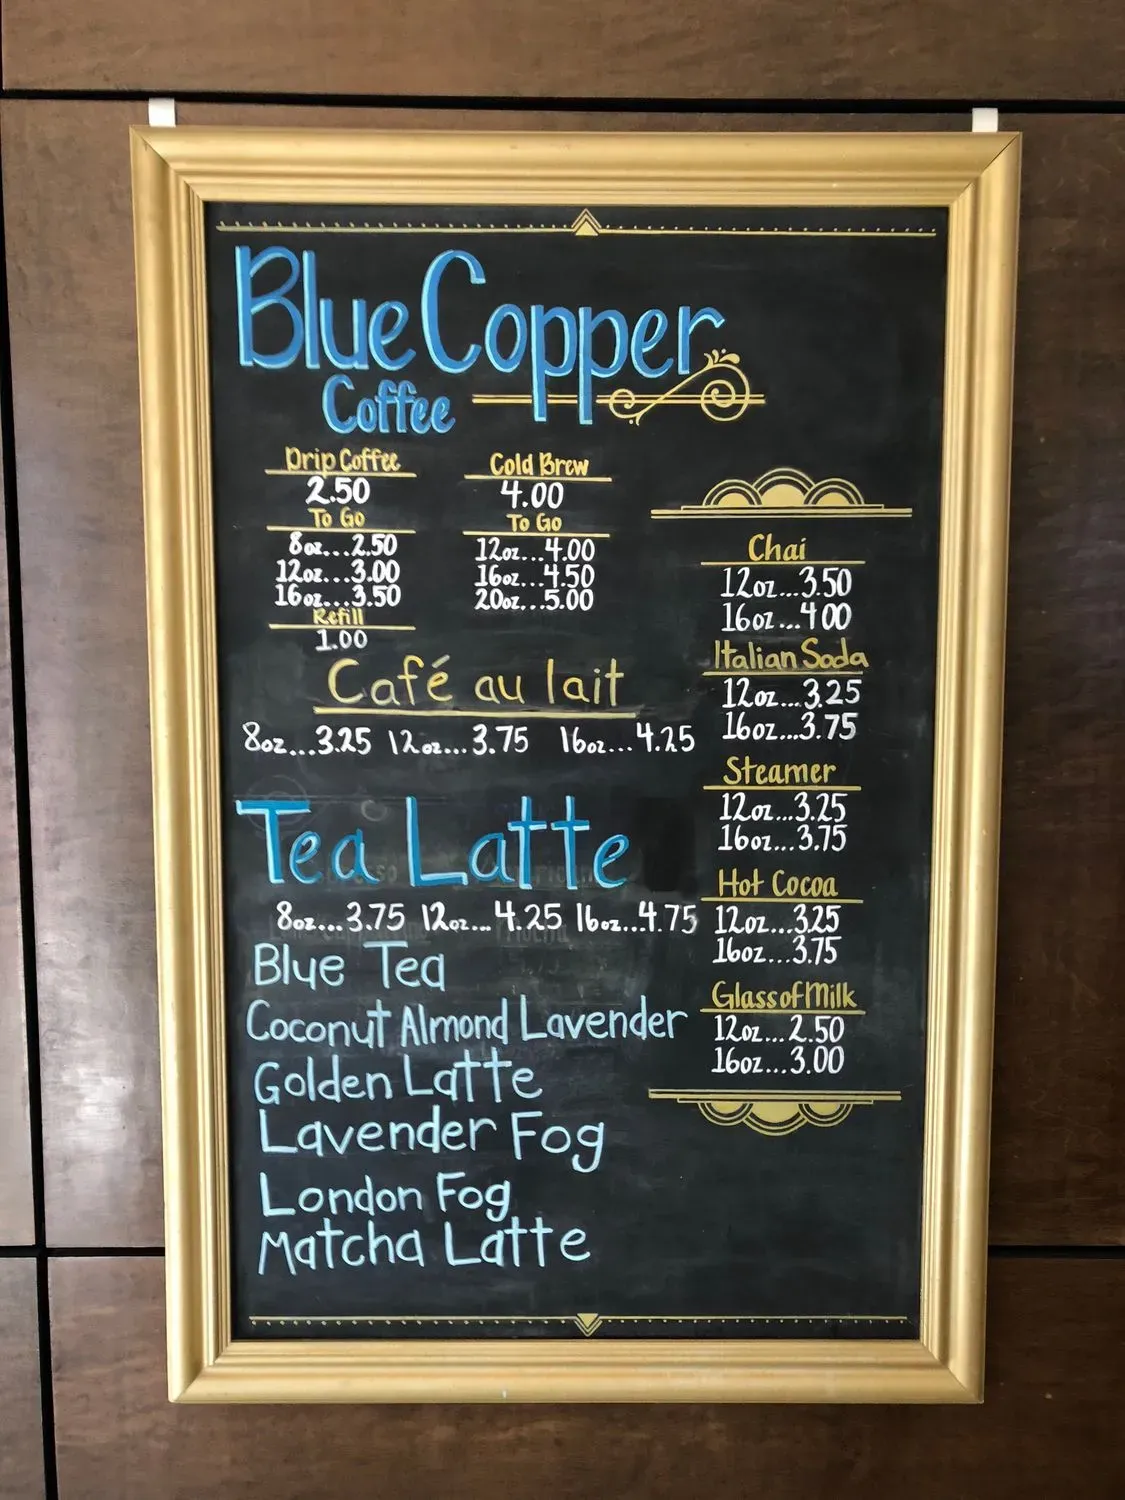 Blue Copper
Coffee
Drip Coffee
2.50
To Go
8oz...2.50
12oz...3.00
16oz...3.50
Refill
1.00
Cold Brew
4.00
To Go
12oz...4.00
16oz...4.50
20oz...5.00
Café au lait
8oz...3.25 12oz...3.75 16oz...4.25
Tea Latte
8oz...3.75 12oz...4.25 16oz...4.75
Blue Tea
Coconut Almond Lavender
Golden Latte
Lavender Fog
London Fog
Matcha Latte
Chai
12oz...3.50
16oz...4 00
Italian Soda
12oz...3.25
16oz...3.75
Steamer
12oz...3.25
16oz...3.75
Hot Cocoa
12oz...3.25
16oz...3.75
Glass of Milk
12oz...2.50
16oz...3.00